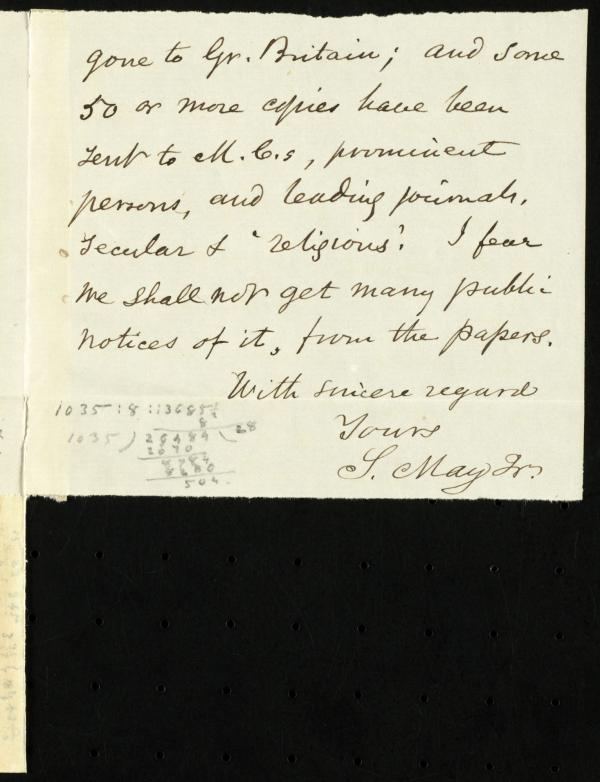 gone to Gr. Britain; and some
50 or more copies have been
sent to M.C.s, prominent
persons, and leading journals,
secular & 'religious'. I fear
we shall not get many public
notices of it, from the papers.
With sincere regard
Yours
S. May Jr.
1035 : 8 ::
8
1035 ) ( 28
2070
504.